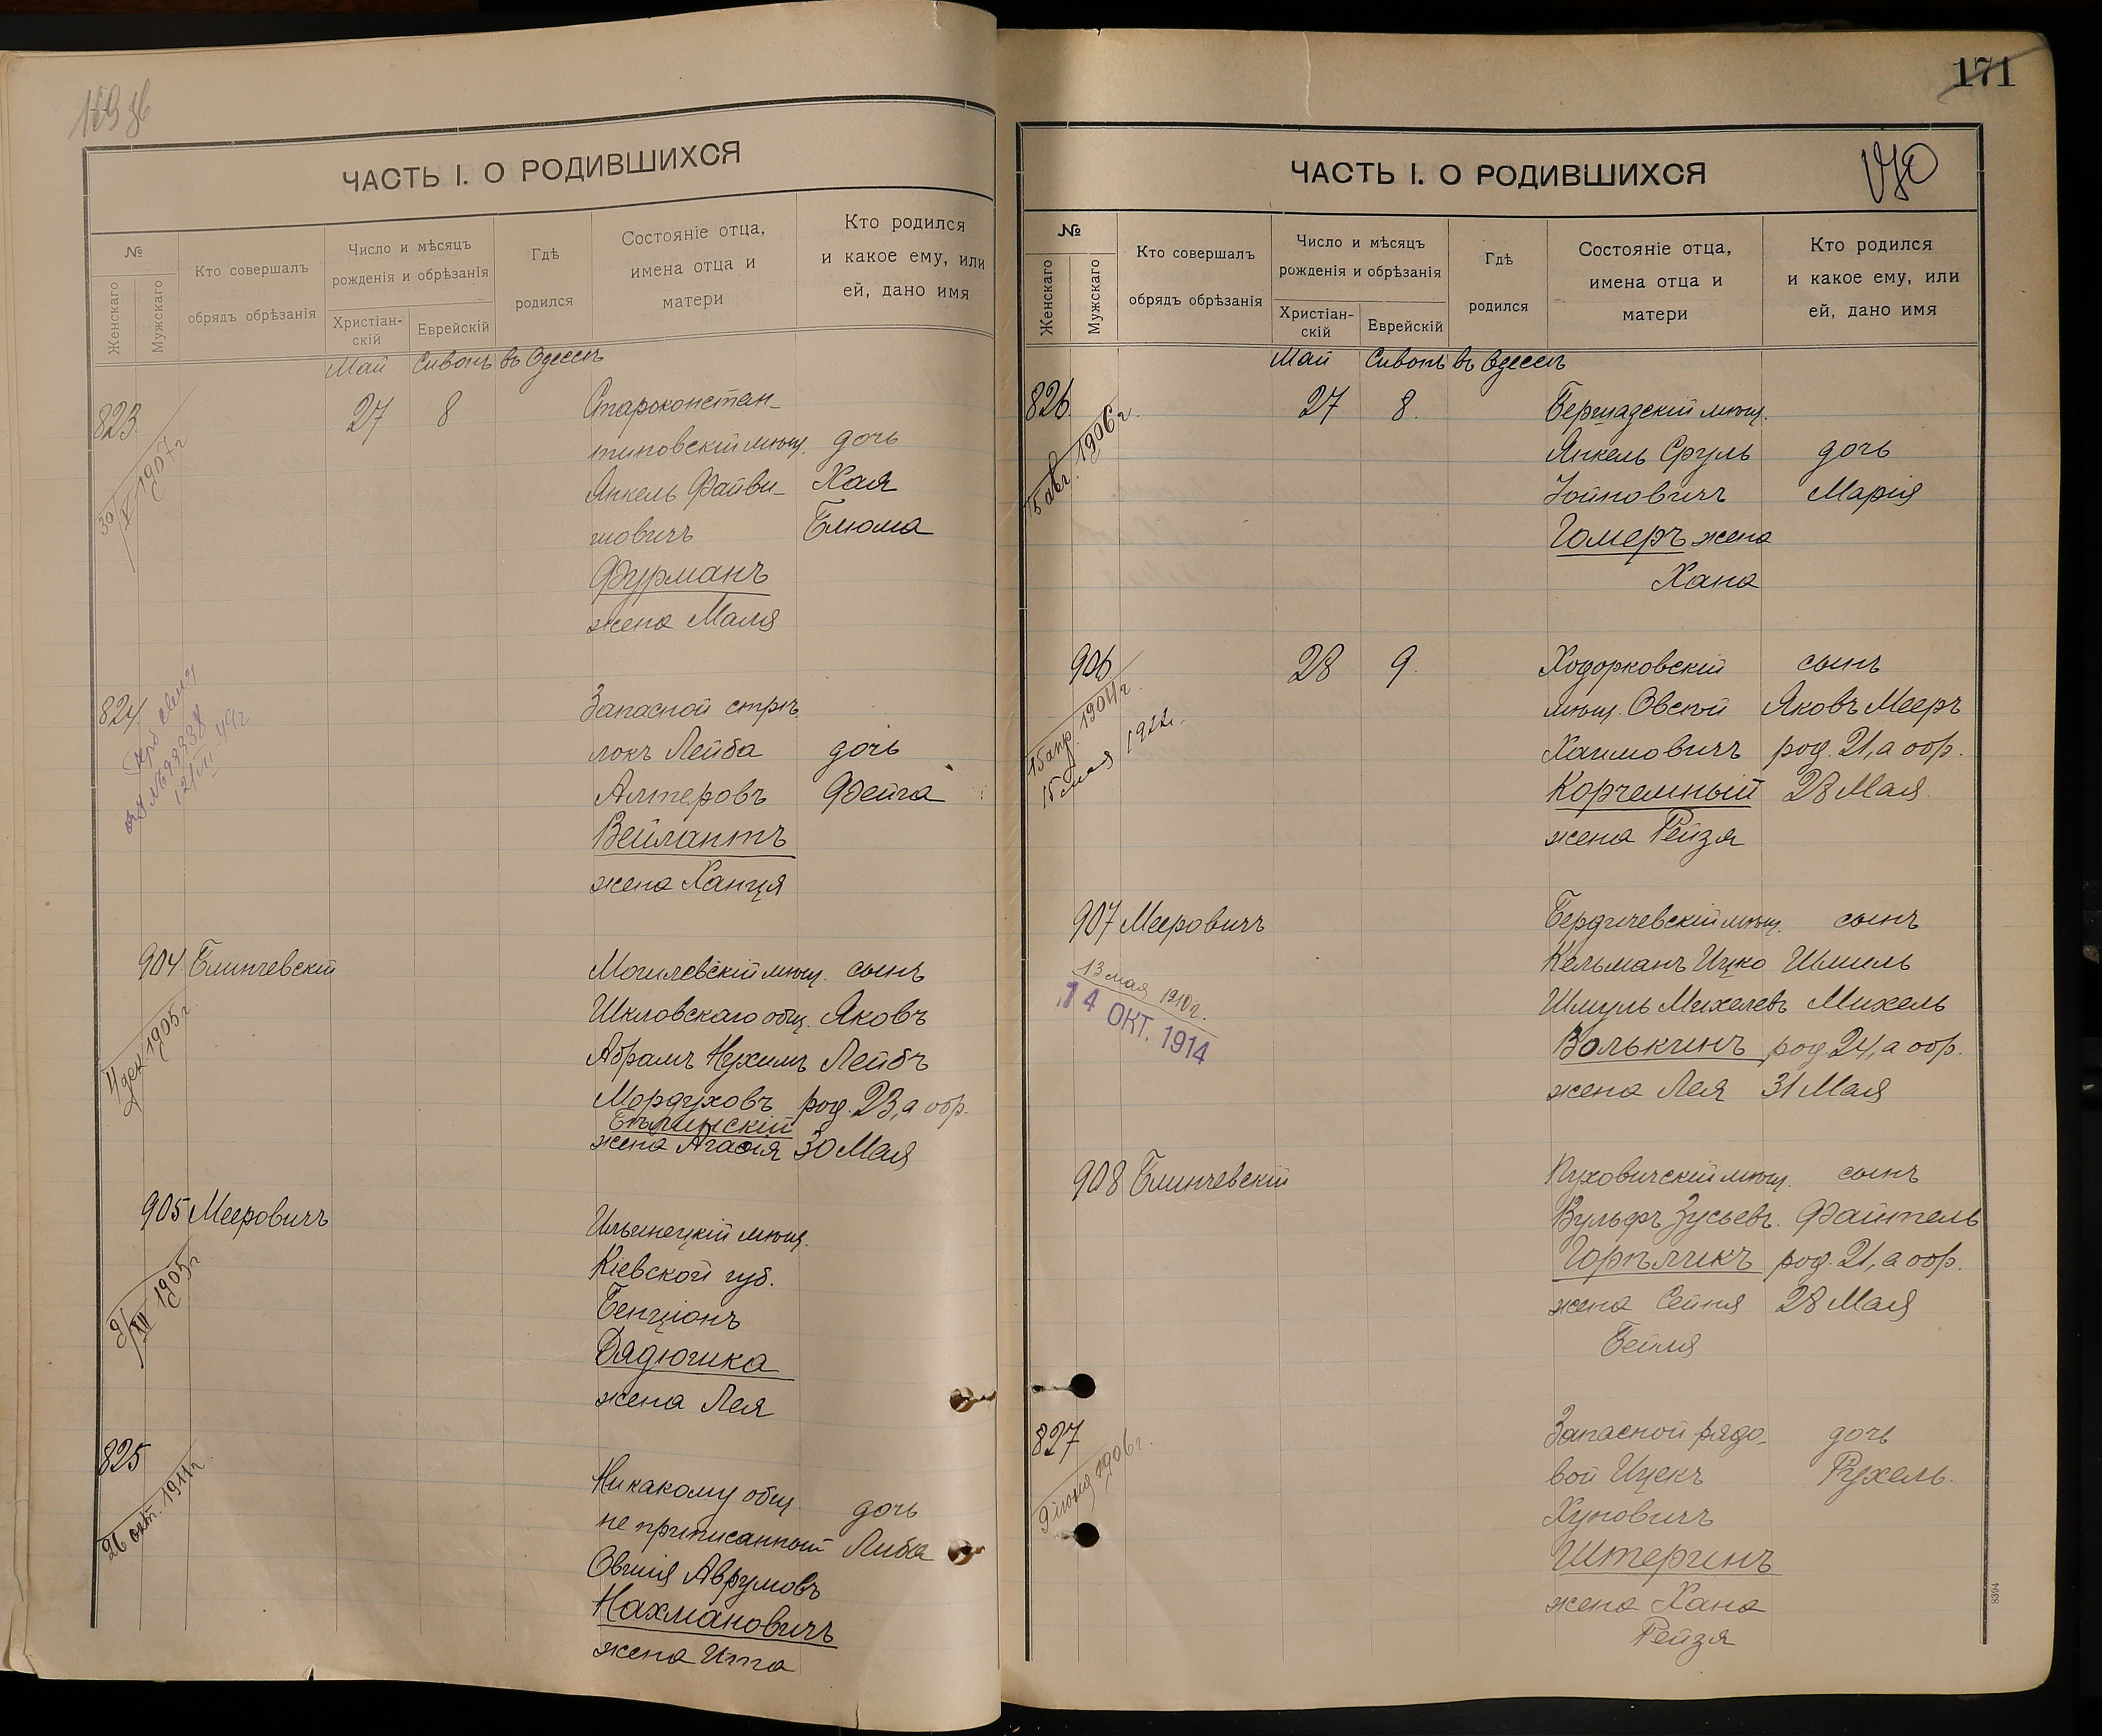 ЧАСТЬ I. О РОДИВШИХСЯ
№
Женскаго
Мужскаго
Кто совершалъ
обрядъ обрѣзанія
Число и мѣсяцъ
рожденія и обрѣзанія
Христіан-
скій
Еврейскій
Гдѣ
родился
Состояніе отца,
имена отца и
матери
Кто родился
и какое ему, или
ей, дано имя
Май Сивонъ въ Одессѣ
823. 27 8 Староконстан-
тиновскій мѣщ. дочь
Янкель Файви- Хая
шовичъ Блюма
Фурманъ
жена Маля
30/X 1907 г
824. Запасной стрѣ-
локъ Лейба дочь
Алтеровъ Фейга
Вейлантъ
жена Ханця
904. Блинчевскій Могилевскій мѣщ. сынъ
Шкловскаго общ. Яковъ
Абрамъ Нухимъ Лейбъ
Мордуховъ род. 23, а обр.
жена Агасія 30 Мая
4 дек. 1905 г.
905 Мееровичъ Ильинецкій мѣщ.
Кіевской губ.
Бенціонъ
Дядюшка
жена Лея
9/XII 1905 г
825 Никакому общ. дочь
не приписанный Либа
Овшія Аврумовъ
Нахмановичъ
жена Ита
26 окт. 1911 г.
171
170
ЧАСТЬ I. О РОДИВШИХСЯ
№
Женскаго
Мужскаго
Кто совершалъ
обрядъ обрѣзанія
Число и мѣсяцъ
рожденія и обрѣзанія
Христіан-
скій
Еврейскій
Гдѣ
родился
Состояніе отца,
имена отца и
матери
Кто родился
и какое ему, или
ей, дано имя
Май Сивонъ въ Одессѣ
826. 27 8. Бершадскій мѣщ.
Янкель Сруль дочь
Іойновичъ Марія
Гомеръ жена
Хана
15 авг. 1906 г.
906 28 9. Ходорковскій сынъ
мѣщ. Овсѣй Яковъ Мееръ
Хаимовичъ род. 21, а обр.
Корчемный 28 Мая
жена Рейзя
15 апр. 1904 г.
15 мая 1922 г.
907 Мееровичъ Бердичевскій мѣщ. сынъ
Кельманъ Ицко Шмиль
Шмуль Михелевъ Михель
Волькинъ род. 24, а обр.
жена Лея 31 Мая
13 мая 1910 г.
14 ОКТ. 1914
908 Блинчевскій Пуховичскій мѣщ. сынъ
Вульфъ Зусьевъ. Файтель
Горѣликъ род. 21, а обр.
жена Сейня 28 Мая
Бейля
827 Запасной рядо- дочь
вой Ицекъ Рухель.
Хуновичъ
Штеринъ
жена Хана
Рейзя
9 іюня 1906 г.
8394